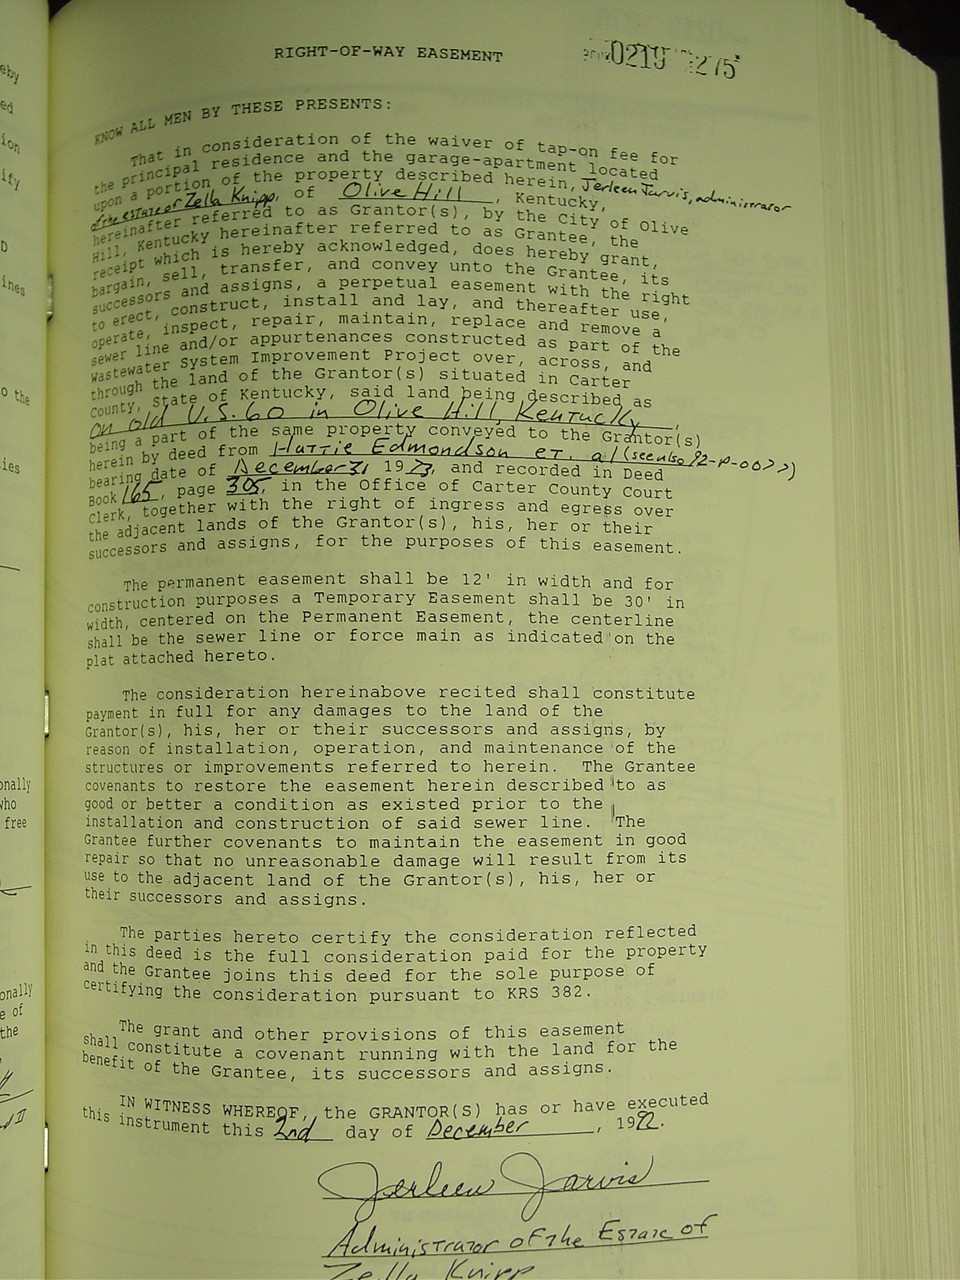 RIGHT-OF-WAY EASEMENT
0219 275
KNOW ALL MEN BY THESE PRESENTS:
That in consideration of the waiver of tap-on fee for
the principal residence and the garage-apartment located
upon a portion of the property described herein, Jerleen Jarvis, administrator
of the estate of Zella Knipp, of Olive Hill, Kentucky,
hereinafter referred to as Grantor(s), by the City of Olive
Hill, Kentucky hereinafter referred to as Grantee, the
receipt which is hereby acknowledged, does hereby grant,
bargain, sell, transfer, and convey unto the Grantee, its
successors and assigns, a perpetual easement with the right
to erect, construct, install and lay, and thereafter use,
operate, inspect, repair, maintain, replace and remove a
sewer line and/or appurtenances constructed as part of the
Wastewater System Improvement Project over, across, and
through the land of the Grantor(s) situated in Carter
County, State of Kentucky, said land being described as
On old U.S. 60 in Olive Hill, Kentucky,
being a part of the same property conveyed to the Grantor(s)
herein by deed from Hattie Edmondson et. al (see also 92-P-
bearing date of December 31, 1973, and recorded in Deed
Book 165, page 305, in the Office of Carter County Court
Clerk, together with the right of ingress and egress over
the adjacent lands of the Grantor(s), his, her or their
successors and assigns, for the purposes of this easement.
The permanent easement shall be 12' in width and for
construction purposes a Temporary Easement shall be 30' in
width, centered on the Permanent Easement, the centerline
shall be the sewer line or force main as indicated on the
plat attached hereto.
The consideration hereinabove recited shall constitute
payment in full for any damages to the land of the
Grantor(s), his, her or their successors and assigns, by
reason of installation, operation, and maintenance of the
structures or improvements referred to herein. The Grantee
covenants to restore the easement herein described to as
good or better a condition as existed prior to the
installation and construction of said sewer line. The
Grantee further covenants to maintain the easement in good
repair so that no unreasonable damage will result from its
use to the adjacent land of the Grantor(s), his, her or
their successors and assigns.
The parties hereto certify the consideration reflected
in this deed is the full consideration paid for the property
and the Grantee joins this deed for the sole purpose of
certifying the consideration pursuant to KRS 382.
The grant and other provisions of this easement
shall constitute a covenant running with the land for the
benefit of the Grantee, its successors and assigns.
IN WITNESS WHEREOF, the GRANTOR(S) has or have executed
this instrument this 2nd day of December, 1992.
Jerleen Jarvis
Administrator of the Estate of
Zella Knipp